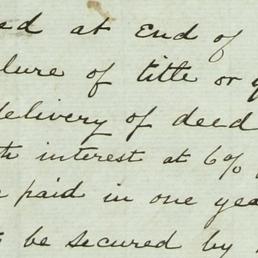 ed at End of
lure of title or
delivery of deed
th interest at 6%
paid in one yea
be secured by